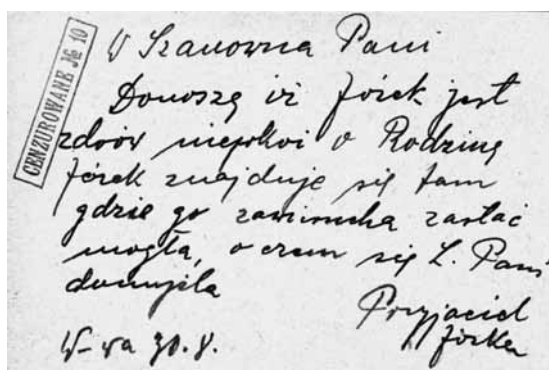 CENZUROWANE № 10
W Szanowna Pani
Donoszę iż Józek jest
zdrów niepokoi o Rodzinę
Józek znajduje się tam
gdzie go zawierucha zastać
mogła, o czem się Pani
domyśla
Przyjaciel
Józka
W-wa 30.8.